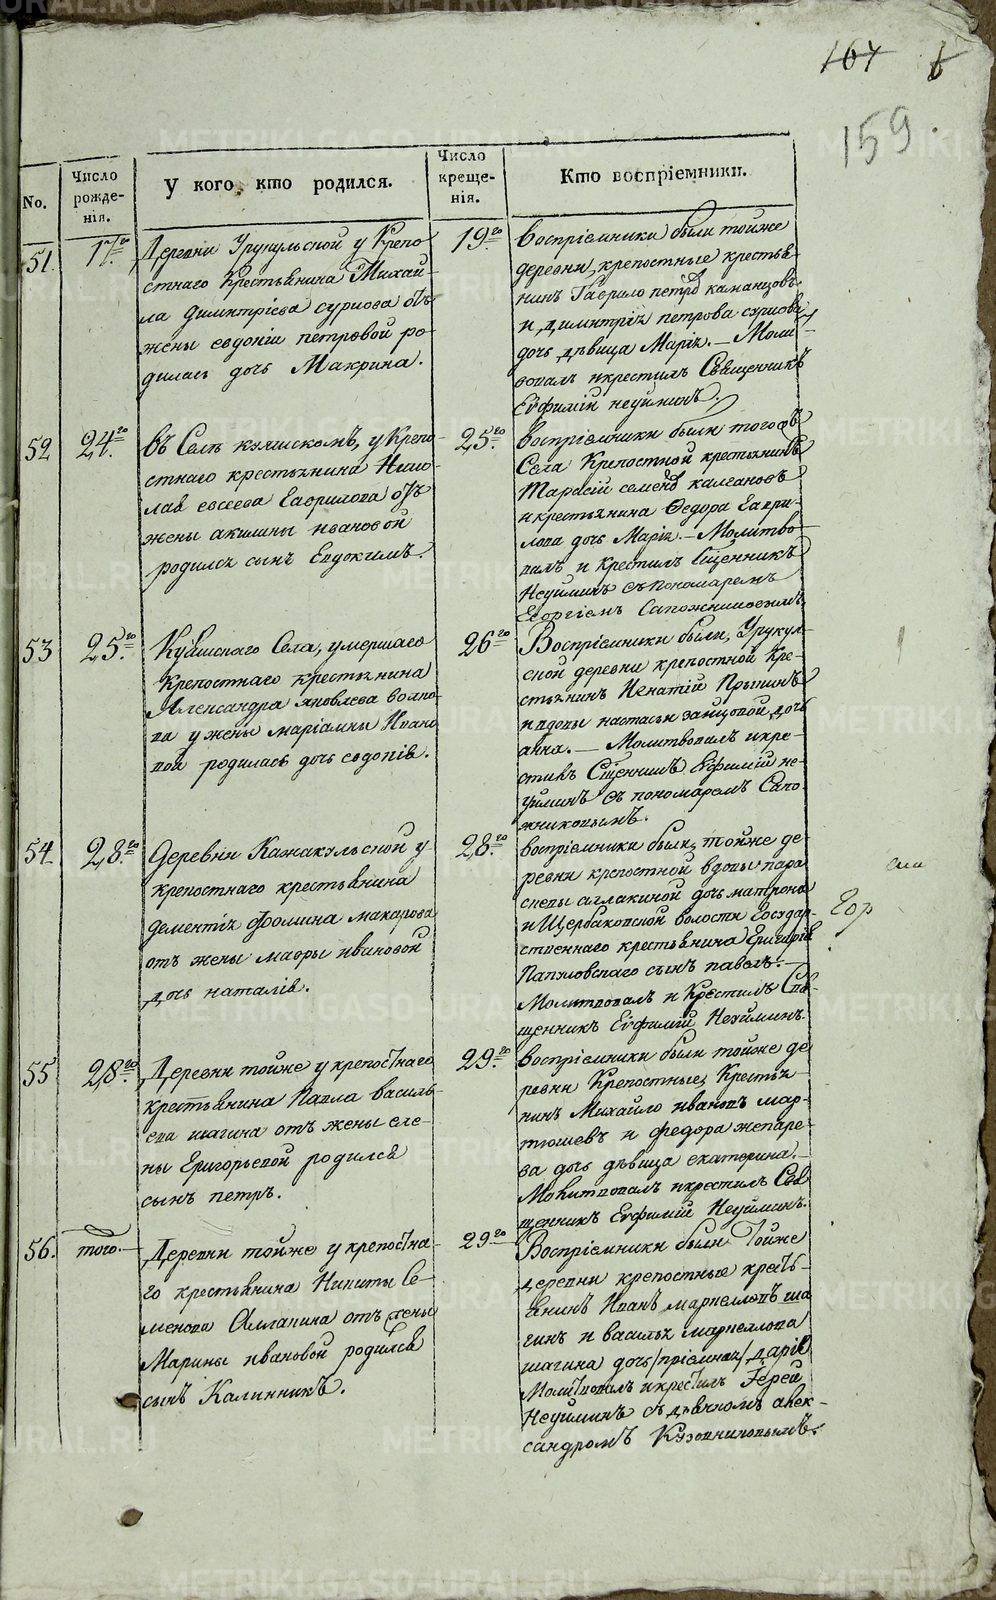 164 6
159
No.
Число рожде-
нія.
У кого кто родился.
Число креще-
нія.
Кто воспріемники.
51.
17го
Деревни Урукульской у Крепо-
стнаго Крестьянина Михай-
ла Димитріева сурнова отъ
жены евдокіи петровой ро-
дилась дочь Макрина.
19го
воспріемники были тойже
деревни крепостные крестья-
нинъ Гаврило петровъ
и димитрія петрова сурнова
дочь дѣвица Марія. — Моли-
твовалъ икрестилъ Священникъ
Еуфимій неуйминъ.
52
24го
въ Селѣ куяшскомъ, у Крепо-
стнаго крестьянина Нико-
лая евсеева Гаврилова отъ
жены акилины ивановой
родился сынъ Евдокимъ.
25го
воспріемники были тогожъ
Села Крепостной крестьянинъ
Тарасій семеновъ калгановъ
и крестьянина Ѳедора Гаври-
лова дочь Марія. — Молитво-
валъ и крестилъ Сщенникъ
Неуйминъ съ пономаремъ
Георгіемъ Сапожниковымъ.
53
25го
Куяшскаго Села, умершаго
Крепостнаго крестьянина
Александра яковлева
у жены маріамны Ивано-
вой родилась дочь евдокія.
26го
Воспріемники были, Урукуль-
ской деревни крепостной Кре-
стьянинъ Игнатій
и вдовы настасьи зайцовой дочь
анна. — Молитвовалъ икре-
стилъ Сщенникъ Еуфимій не-
уйминъ съ пономаремъ Сапо-
жниковымъ.
54
28го
Деревни Кажакульской у
крепостнаго крестьянина
дементія Ѳомина макарова
отъ жены мавры ивановой
дочь наталія.
28го
воспріемники были, тойже де-
ревни крепостной вдовы пара-
скевы аллакиной дочь матрона
и Щербаковской волости Государ-
ственнаго крестьянина Григорія
Папуловскаго сынъ павелъ. —
Молитвовалъ и Крестилъ Свя-
щенникъ Еуфимій Неуйминъ.
Гор
55
28го
Деревни тойже у крепостнаго
крестьянина Павла василь-
ева шагина отъ жены еле-
ны Григорьевой родился
сынъ петръ.
29го
воспріемники были тойже де-
ревни Крепостные, Крестья-
нинъ Михайло ивановъ мар-
тюшевъ и федора
дочь дѣвица екатерина. —
Молитвовалъ икрестилъ Свя-
щенникъ Еуфимій Неуйминъ.
56.
того.
Деревни тойже у крепостна-
го крестьянина Никиты Се-
менова Аллакина отъ жены
Марины ивановой родился
сынъ Калинникъ.
29го
Воспріемники были Тойже
деревни крепостные кресть-
янинъ Иванъ маркелловъ ша-
гинъ и василья маркеллова
шагина дочь /пріемная/ дарія
Молитвовалъ икрестилъ Іерей
Неуйминъ съ дьячкомъ алек-
сандромъ Кузовниковымъ.